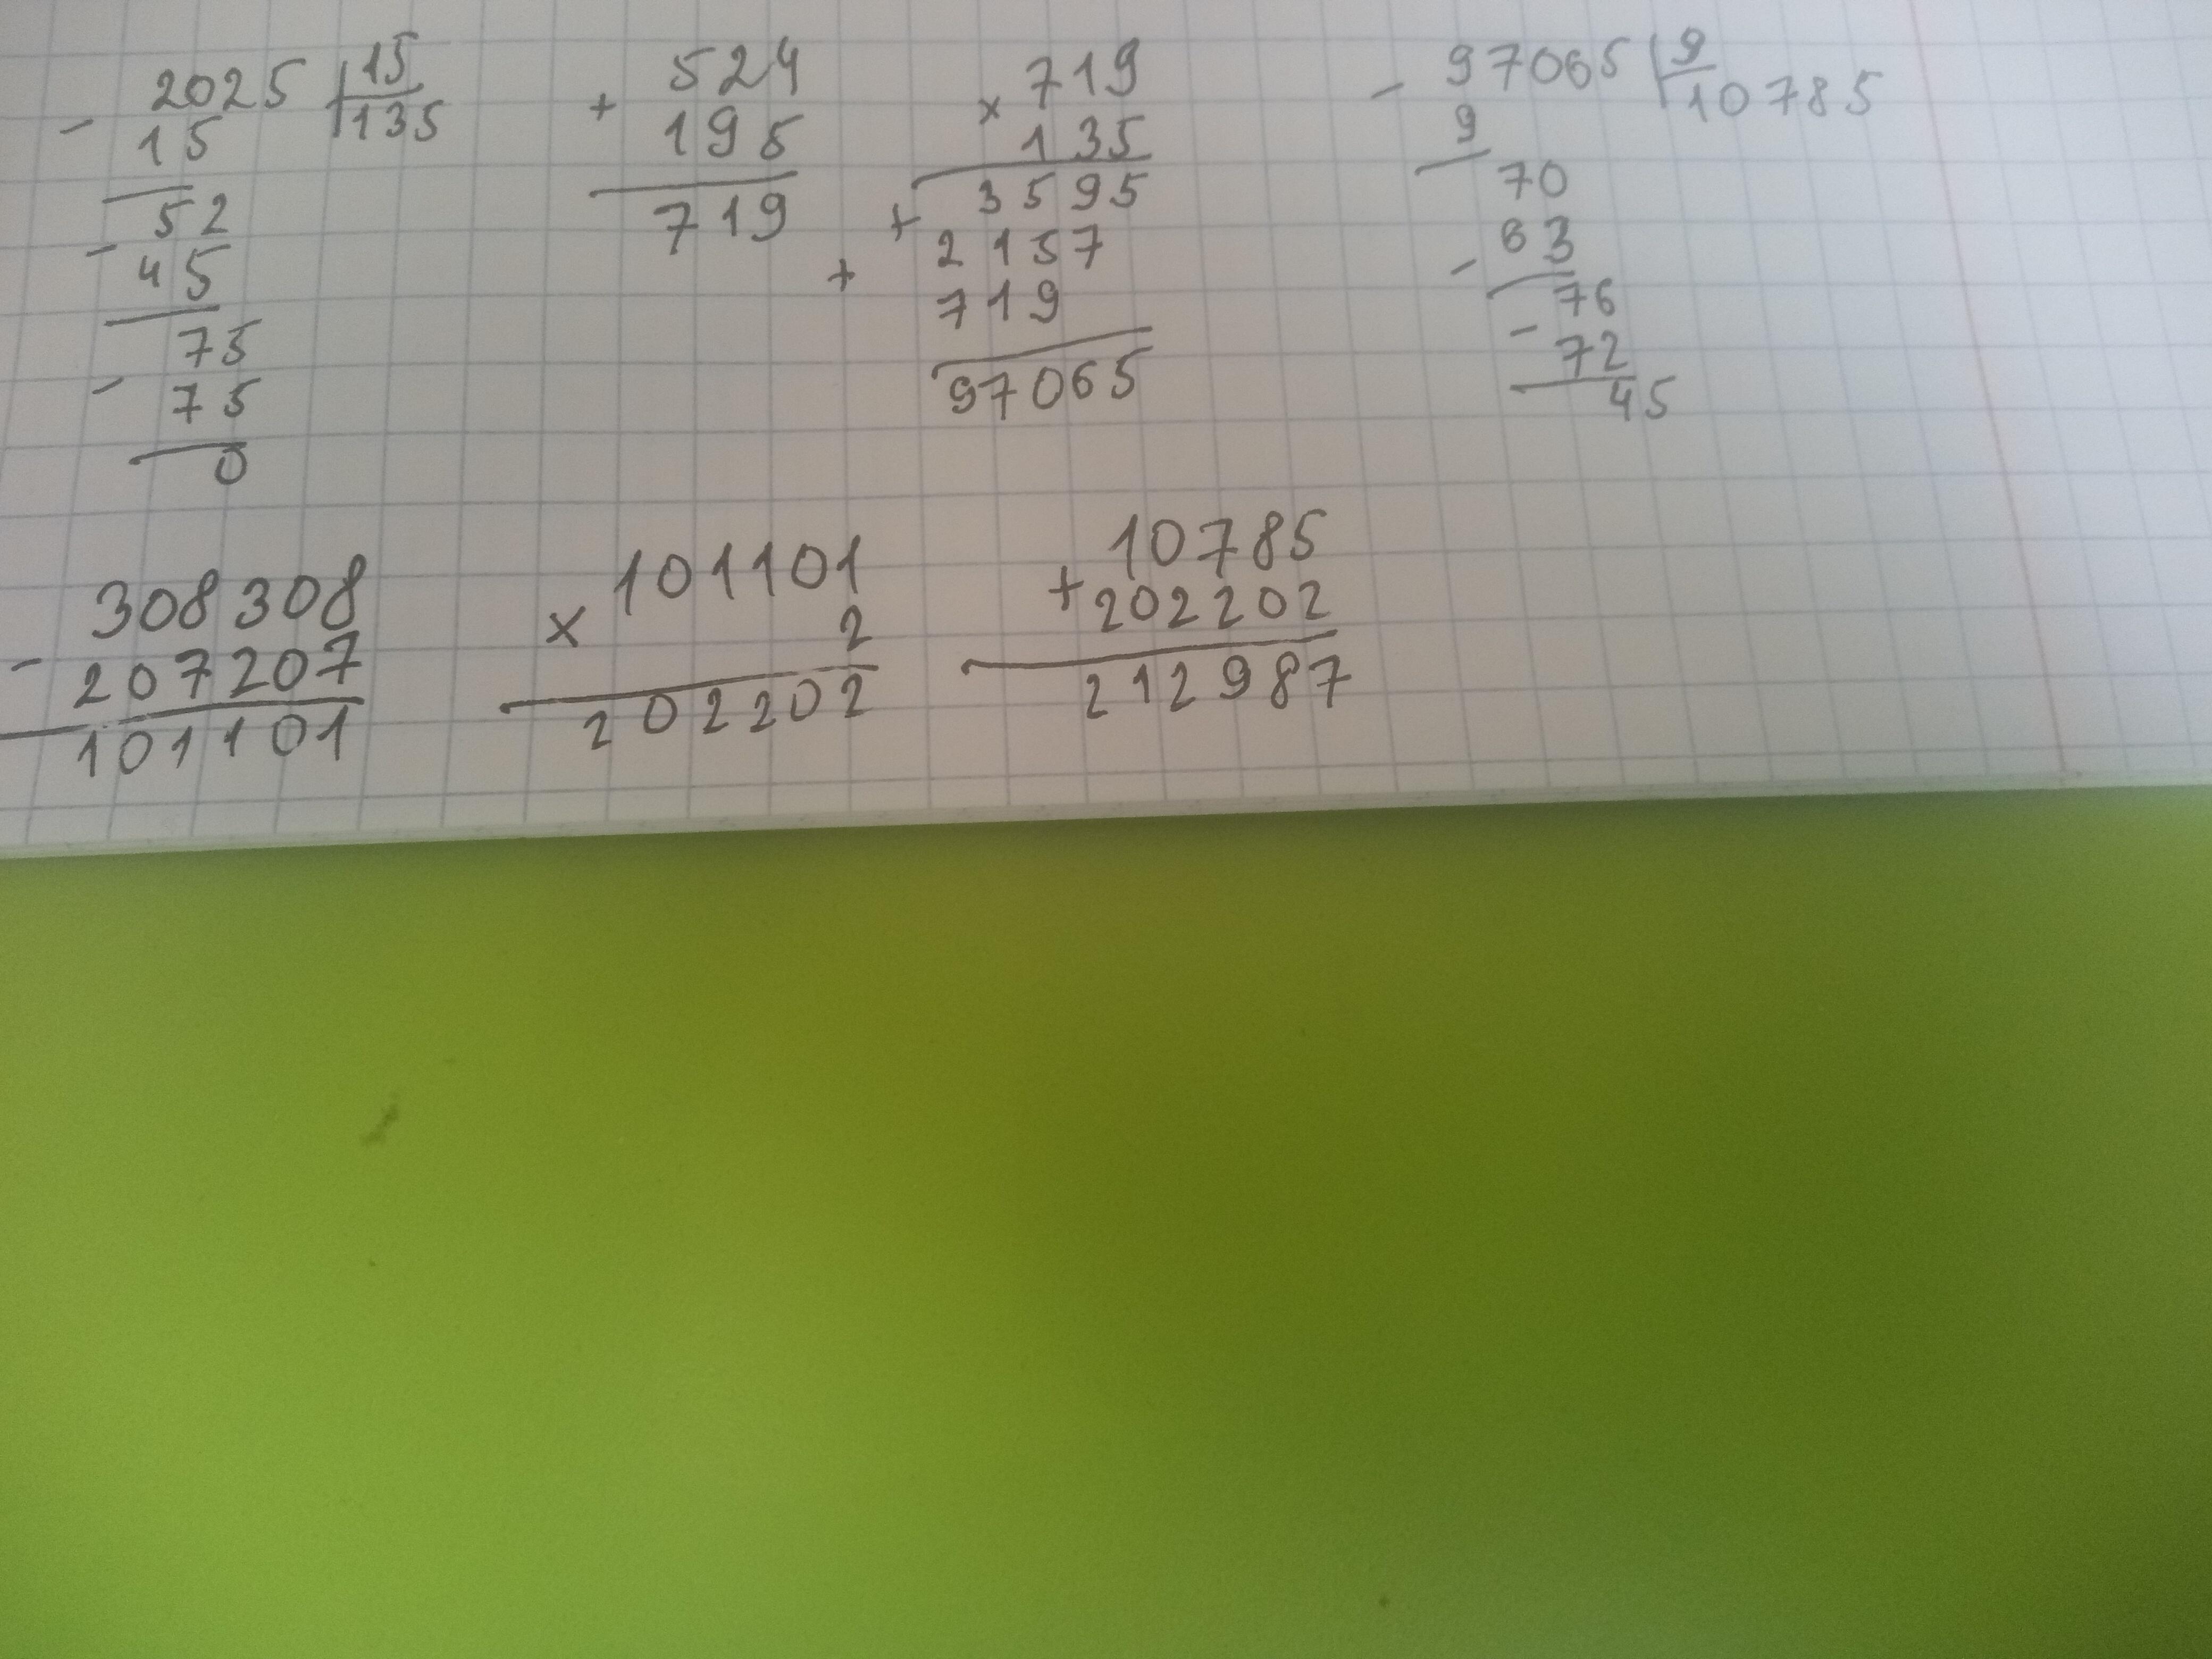 - 2025 | 15
15 | 135
52
- 45
75
- 75
0
+ 524
195
719
× 719
135
3595
+ 2157
+ 719
97065
- 97065 | 9
9 | 10785
70
- 63
76
- 72
45
308308
- 207207
101101
101101
× 2
202202
10785
+ 202202
212987